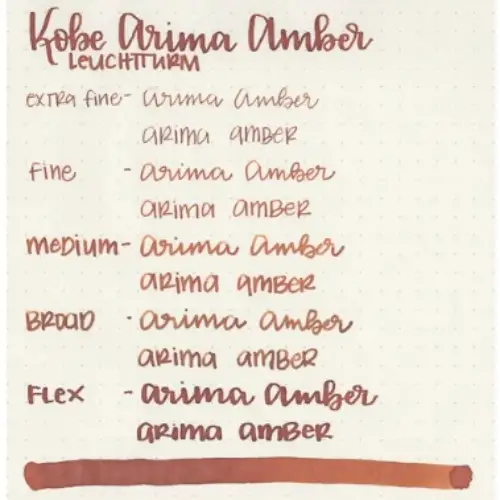 Kobe Arima Amber
LEUCHTTURM
extra fine - arima amber
arima amber
fine - arima amber
arima amber
medium - arima amber
arima amber
BROAD - arima amber
arima amber
FLEX - arima amber
arima amber